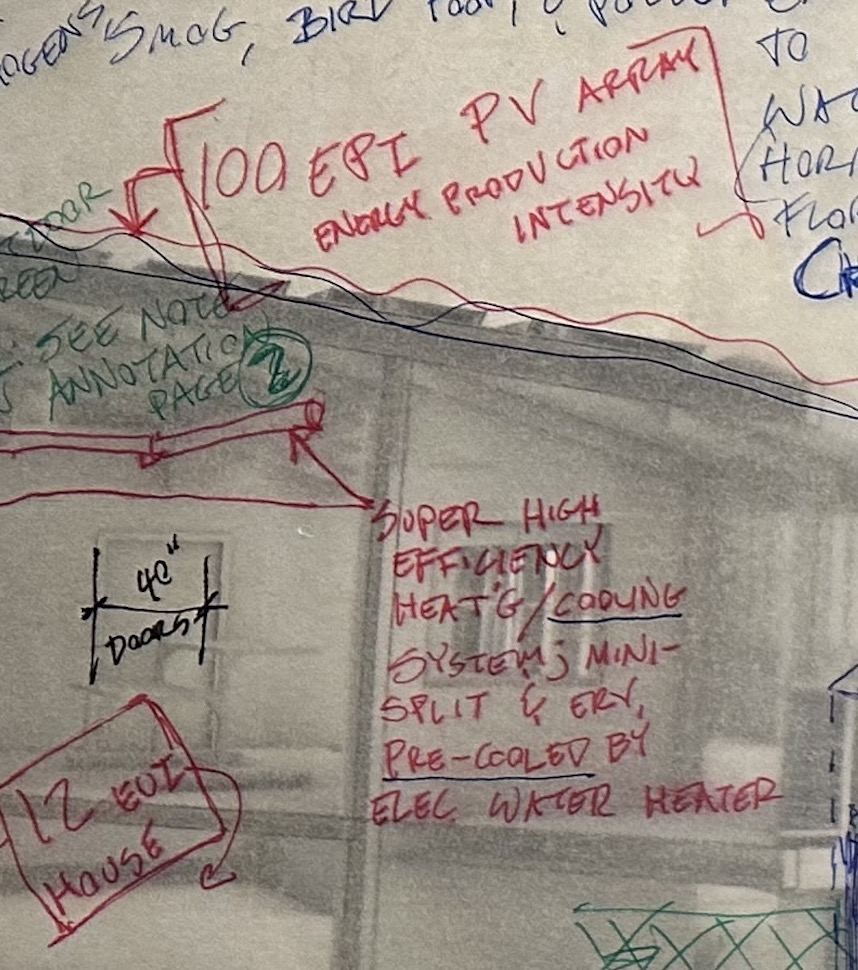 SMOG, BIRD
TO
100 EPI PV ARRAY
ENERGY PRODUCTION
INTENSITY
SEE NOTE
ANNOTATION
PAGE 2
SUPER HIGH
EFFICIENCY
HEAT'G/COOLING
SYSTEM; MINI-
SPLIT & ERV,
PRE-COOLED BY
ELEC WATER HEATER
40"
DOORS
12 EUI
HOUSE